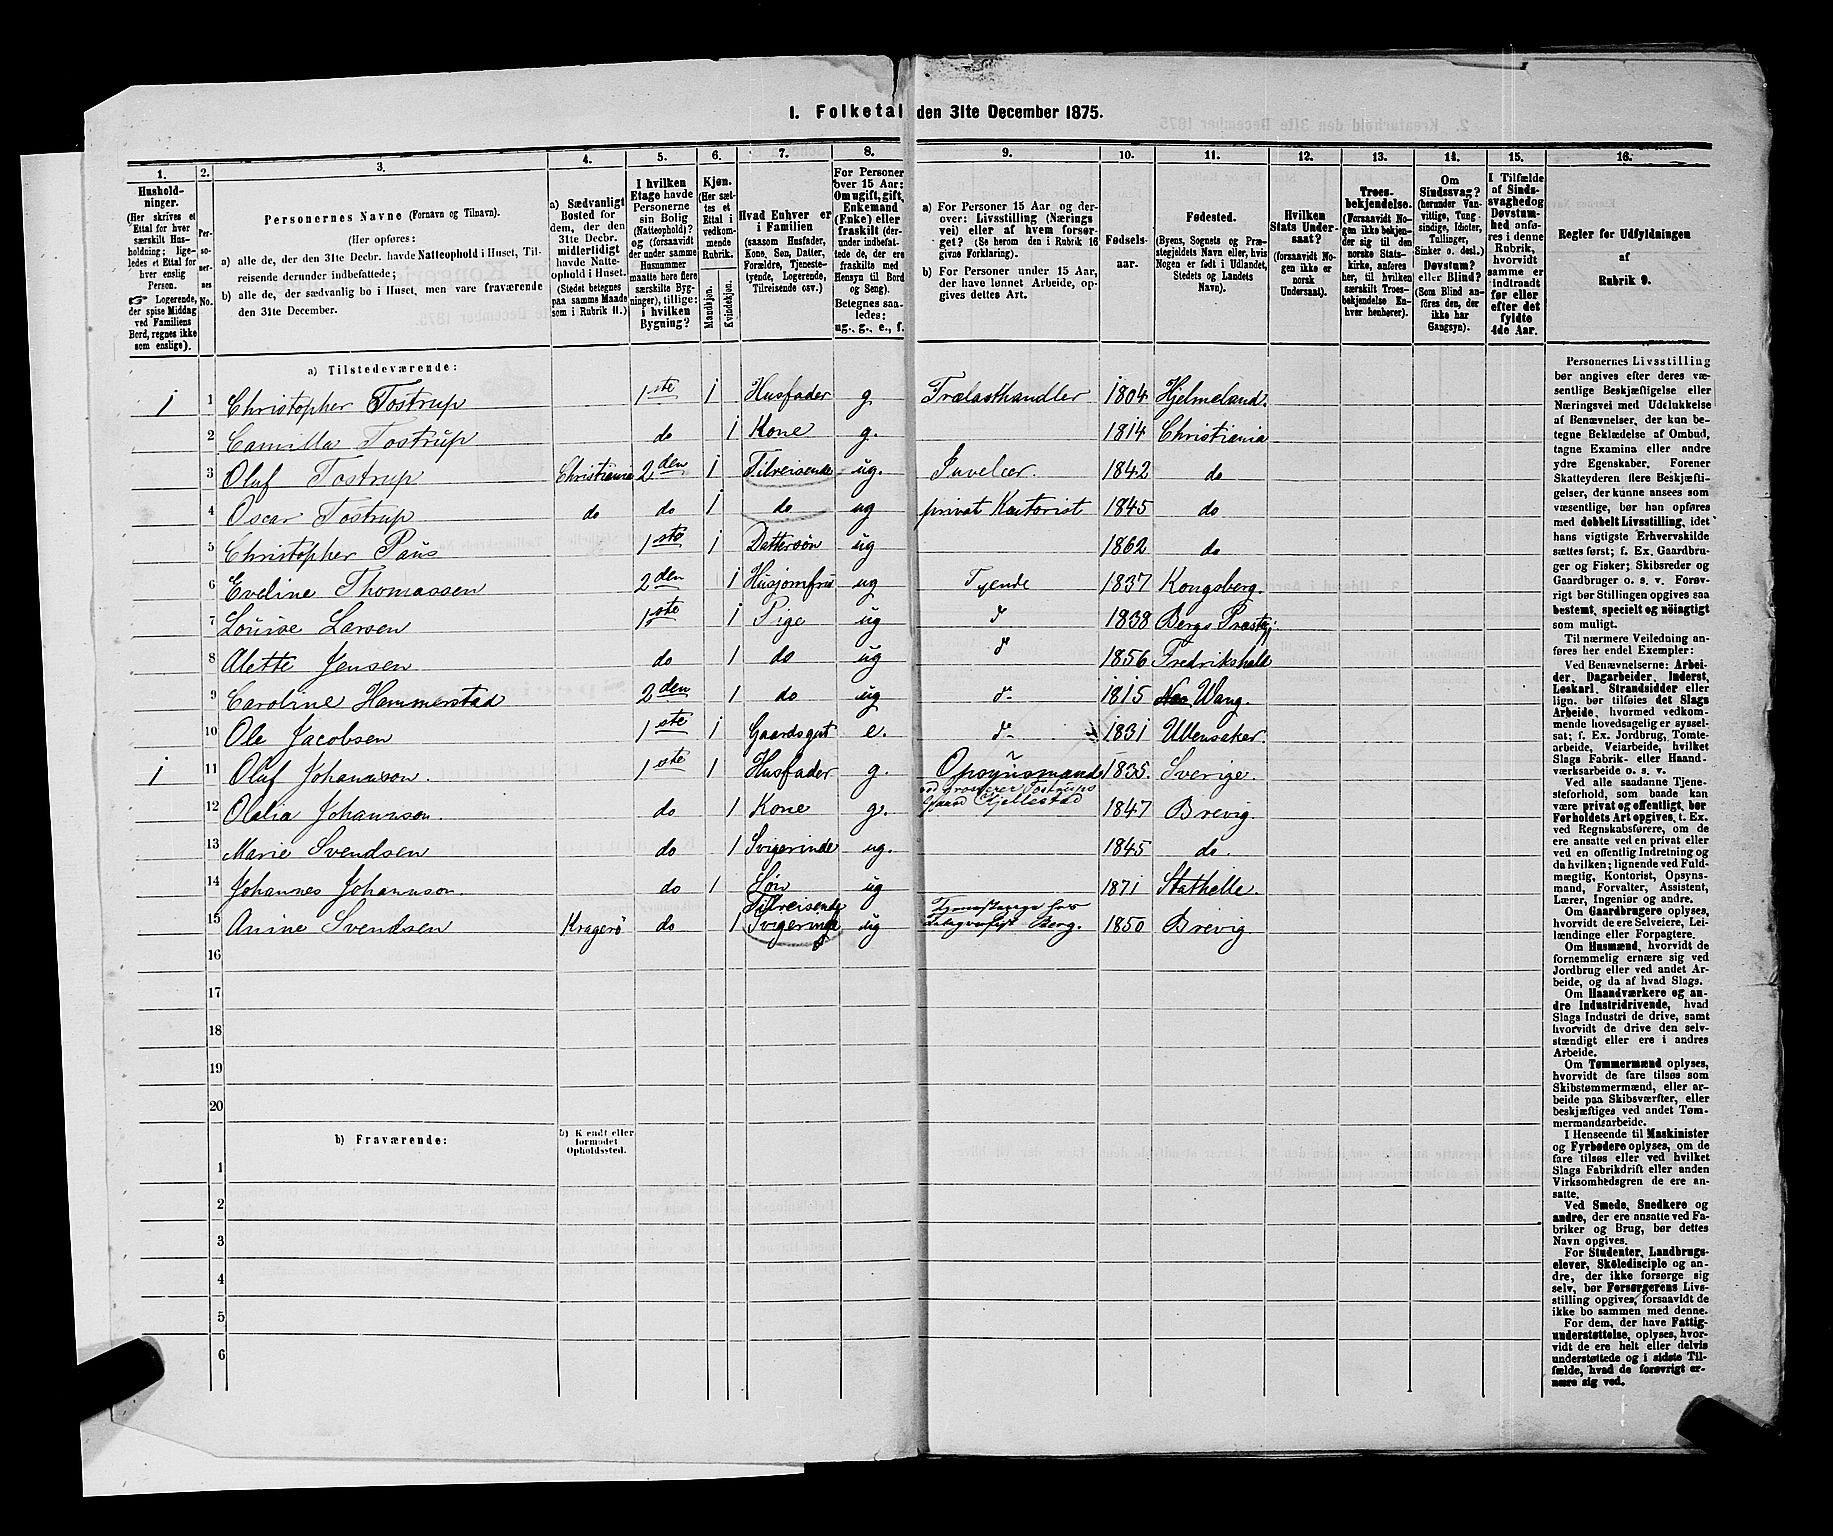 1. Folketal den 31te December 1875.
1. 2. 3. 4. 5. 6. 7. 8. 9. 10. 11. 12. 13. 14. 15. 16.
Hushold-
ninger.
(Her skrives et
Ettal for hver
særskilt Hus-
holdning; lige-
ledes et Ettal for
hver enslig
Person.
☞ Logerende,
der spise Middag
ved Familiens
Bord, regnes ikke
som enslige).
Per-
so-
ner-
nes
No.
Personernes Navne (Fornavn og Tilnavn).
(Her opføres:
a) alle de, der den 31te Decbr. havde Natteophold i Huset, Til-
reisende derunder indbefattede;
b) alle de, der sædvanlig bo i Huset, men vare fraværende
den 31te December.
a) Sædvanligt
Bosted for
dem, der den
31te Decbr.
midlertidigt
havde Natte-
ophold i Huset.
(Stedet betegnes
paa samme Maade
som i Rubrik 11.)
I hvilken
Etage havde
Personerne
sin Bolig
(Natteophold)?
og (forsaavidt
der under samme
Husnummer
maatte høre flere
særskilte Byg-
ninger), tillige:
i hvilken
Bygning?
Kjøn.
(Her sæt-
tes et
Ettal i
vedkom-
mende
Rubrik.
Mandkjøn.
Kvindekjøn.
Hvad Enhver er
i Familien
(saasom Husfader,
Kone, Søn, Datter,
Forældre, Tjeneste-
tyende, Logerende,
Tilreisende osv.).
For Personer
over 15 Aar:
Om ugift, gift,
Enkemand
(Enke) eller
fraskilt (der-
under indbefat-
tede de, der ere
fraskilte med
Hensyn til Bord
og Seng).
Betegnes saa-
ledes:
ug., g., e., f.
a) For Personer 15 Aar og der-
over: Livsstilling (Nærings
vei) eller af hvem forsør-
get? (Se herom den i Rubrik 16
givne Forklaring).
b) For Personer under 15 Aar,
der have lønnet Arbeide, op-
gives dettes Art.
Fødsels-
aar.
Fødested.
(Byens, Sognets og Præ-
stegjeldets Navn eller, hvis
Nogen er født i Udlandet,
Stedets og Landets
Navn).
Hvilken
Stats Under-
saat?
(forsaavidt No-
gen ikke er
norsk
Undersaat).
Troes-
bekjendelse.
(Forsaavidt No-
gen ikke bekjen-
der sig til den
norske Stats-
kirke, anføres
her, til hvilken
særskilt Troes-
bekjendelse En-
hver henhører).
Om
Sindssvag?
(herunder Van-
vittige, Tung-
sindige, Idioter,
Tullinger,
Sinker o. desl.)
Døvstum?
eller Blind?
(Som Blind an-
føres den, der
ikke har
Gangsyn).
I Tilfælde
af Sinds-
svaghed og
Døvstum-
hed anfø-
res i denne
Rubrik,
hvorvidt
samme er
indtraadt
før eller
efter det
fyldte
4de Aar.
Regler for Udfyldningen
af
Rubrik 9.
a) Tilstedeværende:
1 1 Christopher Tostrup 1ste 1 Husfader g. Trælasthandler 1804 Hjelmeland.
2 Camilla Tostrup do 1 Kone g. 1814 Christiania
3 Oluf Tostrup Christiania 2den 1 Tilreisende ug. Juveler. 1842 do
4 Oscar Tostrup do do 1 do ug privat Kontorist 1845 do
5 Christopher Paus 1ste 1 Dattersøn ug 1862 do
6 Eveline Thomassen 2den 1 Husjomfru ug Tyende 1837 Kongsberg.
7 Louise Larsen 1ste 1 Pige ug d 1838 Bergs Præstegj.
8 Alette Jensen do 1 do ug d 1856 Fredrikshald
9 Caroline Hammerstad 2den 1 do ug d- 1815 Wang.
10 Ole Jacobsen 1ste 1 Gaardsgut e. d- 1831 Ullensaker.
1 11 Oluf Johannson. 1ste 1 Husfader g. Opsynsmand 1835. Sverige.
ved Grosserer Tostrups
Gaard Kjellestad
12 Olalia Johannson. do 1 Kone g. 1847 Brevig.
13 Marie Svendsen do 1 Svigerinde ug. 1845 do.
14 Johannes Johannson. do 1 Søn ug 1871 Stathelle.
15 Anine Svendsen Kragerø do 1 Tilreisende Svigerinde ug Telegrafist Berg. 1850 Brevig.
16
17
18
19
20
b) Fraværende:
b) Kjendt eller
formodet
Opholdssted.
1
2
3
4
5
6
Personernes Livsstilling
bør angives efter deres væ-
sentlige Beskjæftigelse eller
Næringsvei med Udelukkelse
af Benævnelser, der kun be-
tegne Beklædelse af Ombud,
tagne Examina eller andre
ydre Egenskaber. Forener
Skatteyderen flere Beskjæfti-
gelser, der kunne ansees som
væsentlige, bør han opføres
med dobbelt Livsstilling, idet
hans vigtigste Erhvervskilde
sættes først; f. Ex. Gaardbru-
ger og Fisker; Skibsreder og
Gaardbruger o. s. v. Forøv-
rigt bør Stillingen opgives saa
bestemt, specielt og nøiagtigt
som muligt.
Til nærmere Veiledning an-
føres her endel Exempler:
Ved Benævnelserne: Arbei-
der, Dagarbeider, Inderst,
Løskarl, Strandsidder eller
lign. bør tilføies det Slags
Arbeide, hvormed vedkom-
mende hovedsagelig er syssel-
sat; f. Ex. Jordbrug, Tomte-
arbeide, Veiarbeide, hvilket
Slags Fabrik- eller Haand-
værksarbeide o. s. v.
Ved alle saadanne Tjene-
steforhold, som baade kan
være privat og offentligt, bør
Forholdets Art opgives, t. Ex.
ved Regnskabsførere, om de
ere ansatte ved en privat eller
ved en offentlig Indretning og
da hvilken; lignende ved Fuld-
mægtig, Kontorist, Opsyns-
mand, Forvalter, Assistent,
Lærer, Ingeniør og andre.
Om Gaardbrugere oplyses,
hvorvidt de ere Selveiere, Lei-
lændinge eller Forpagtere.
Om Husmænd, hvorvidt de
fornemmelig ernære sig ved
Jordbrug eller ved andet Ar-
beide, og da af hvad Slags.
Om Haandværkere og an-
dre Industridrivende, hvad
Slags Industri de drive, samt
hvorvidt de drive den selv-
stændigt eller ere i andres
Arbeide.
Om Tømmermænd oplyses,
hvorvidt de fare tilsøs som
Skibstømmermænd, eller ar-
beide paa Skibsværfter, eller
beskjæftiges ved andet Tøm-
mermandsarbeide.
I Henseende til Maskinister
og Fyrbødere oplyses, om de
fare tilsøs eller ved hvilket
Slags Fabrikdrift eller anden
Virksomhedsgren de ere an-
satte.
Ved Smede, Snedkere og
andre, der ere ansatte ved Fa-
briker og Brug, bør dettes
Navn opgives.
For Studenter, Landbrugs-
elever, Skoledisciple og an-
dre, der ikke forsørge sig
selv, bør Forsørgerens Livs-
stilling opgives, forsaavidt de
ikke bo sammen med denne.
For dem, der have Fattig-
understøttelse, oplyses, hvor-
vidt de ere helt eller delvis
understøttede og i sidste Til-
fælde, hvad de forøvrigt er-
nære sig ved.